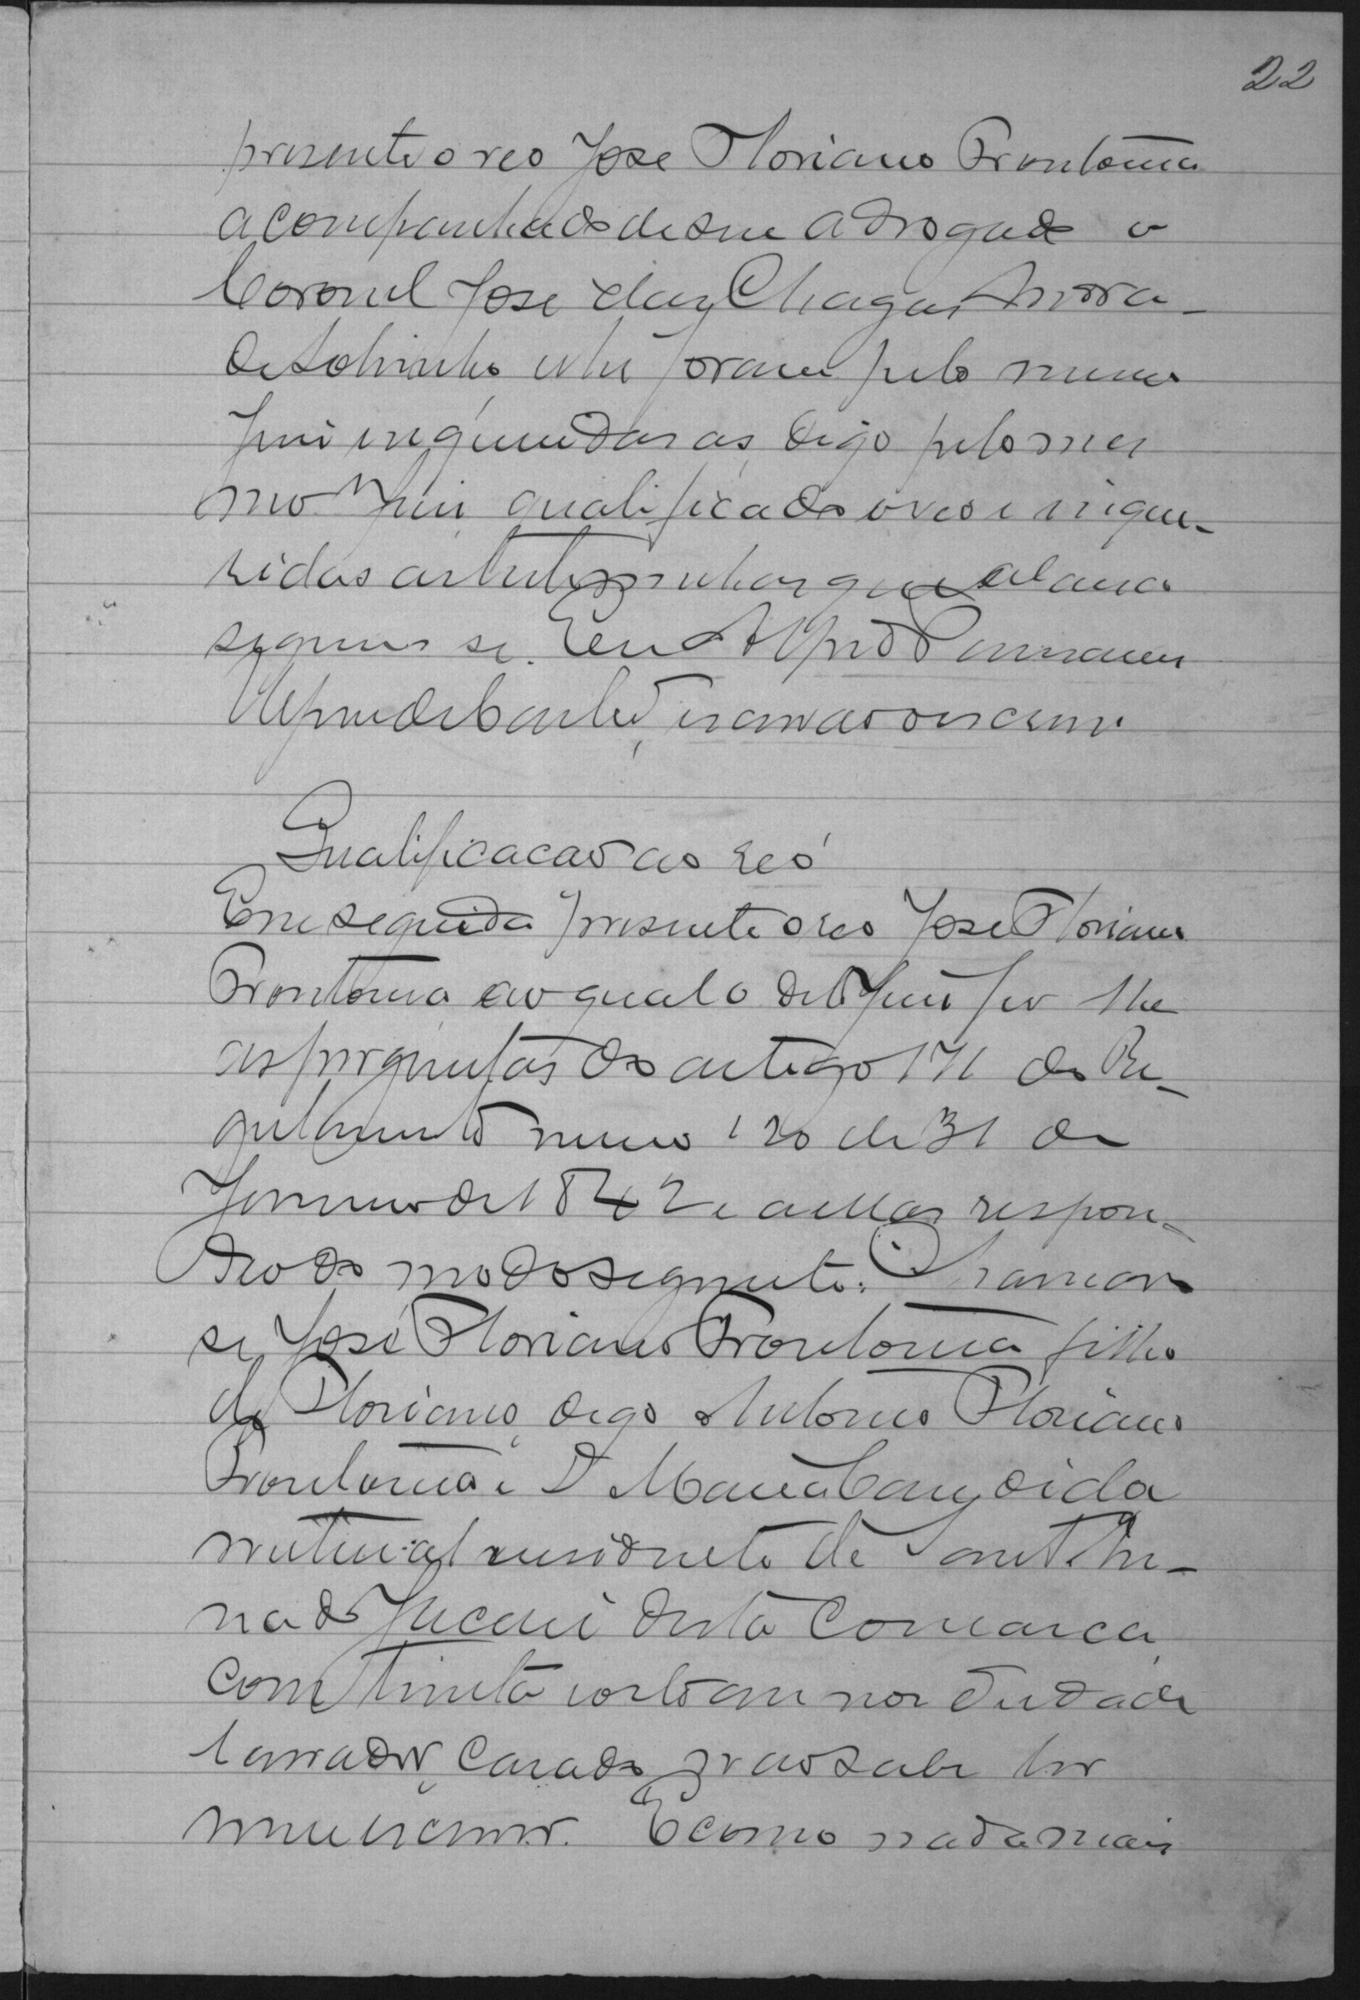 22
presente o reo Jose Floriano Prontomia
acompanhado de seu advogado o
Coronel Jose das Chagas Andra-
de Sobrinho ahi foram pelo mesmo
Juiz inqueridas as, digo pelo mes
mo Juiz qualificado o reo e inque-
ridas as testemunhas que adiante
seguem se. Eu
escrivão o escrevi.
Qualificacao ao reó
Em seguida presente o reo Jose Floriano
Prontomia ao qual o dito Juiz fez lhe
as perguntas do artigo 171 do Re-
gulamento numero 120 de 31 de
Janeiro de 1842 e a ellas respon-
deo do modo seguinte: Chamar
se José Floriano Prontomia filho
de Floriano, digo Antonio Floriano
Prontomia e D Maria Candida
natural e residente de Sant'An-
na do Jacaré desta Comarca,
com trinta e oito annos de edade
lavrador, casado, não sabe ler
nem escrever. E como nada mais